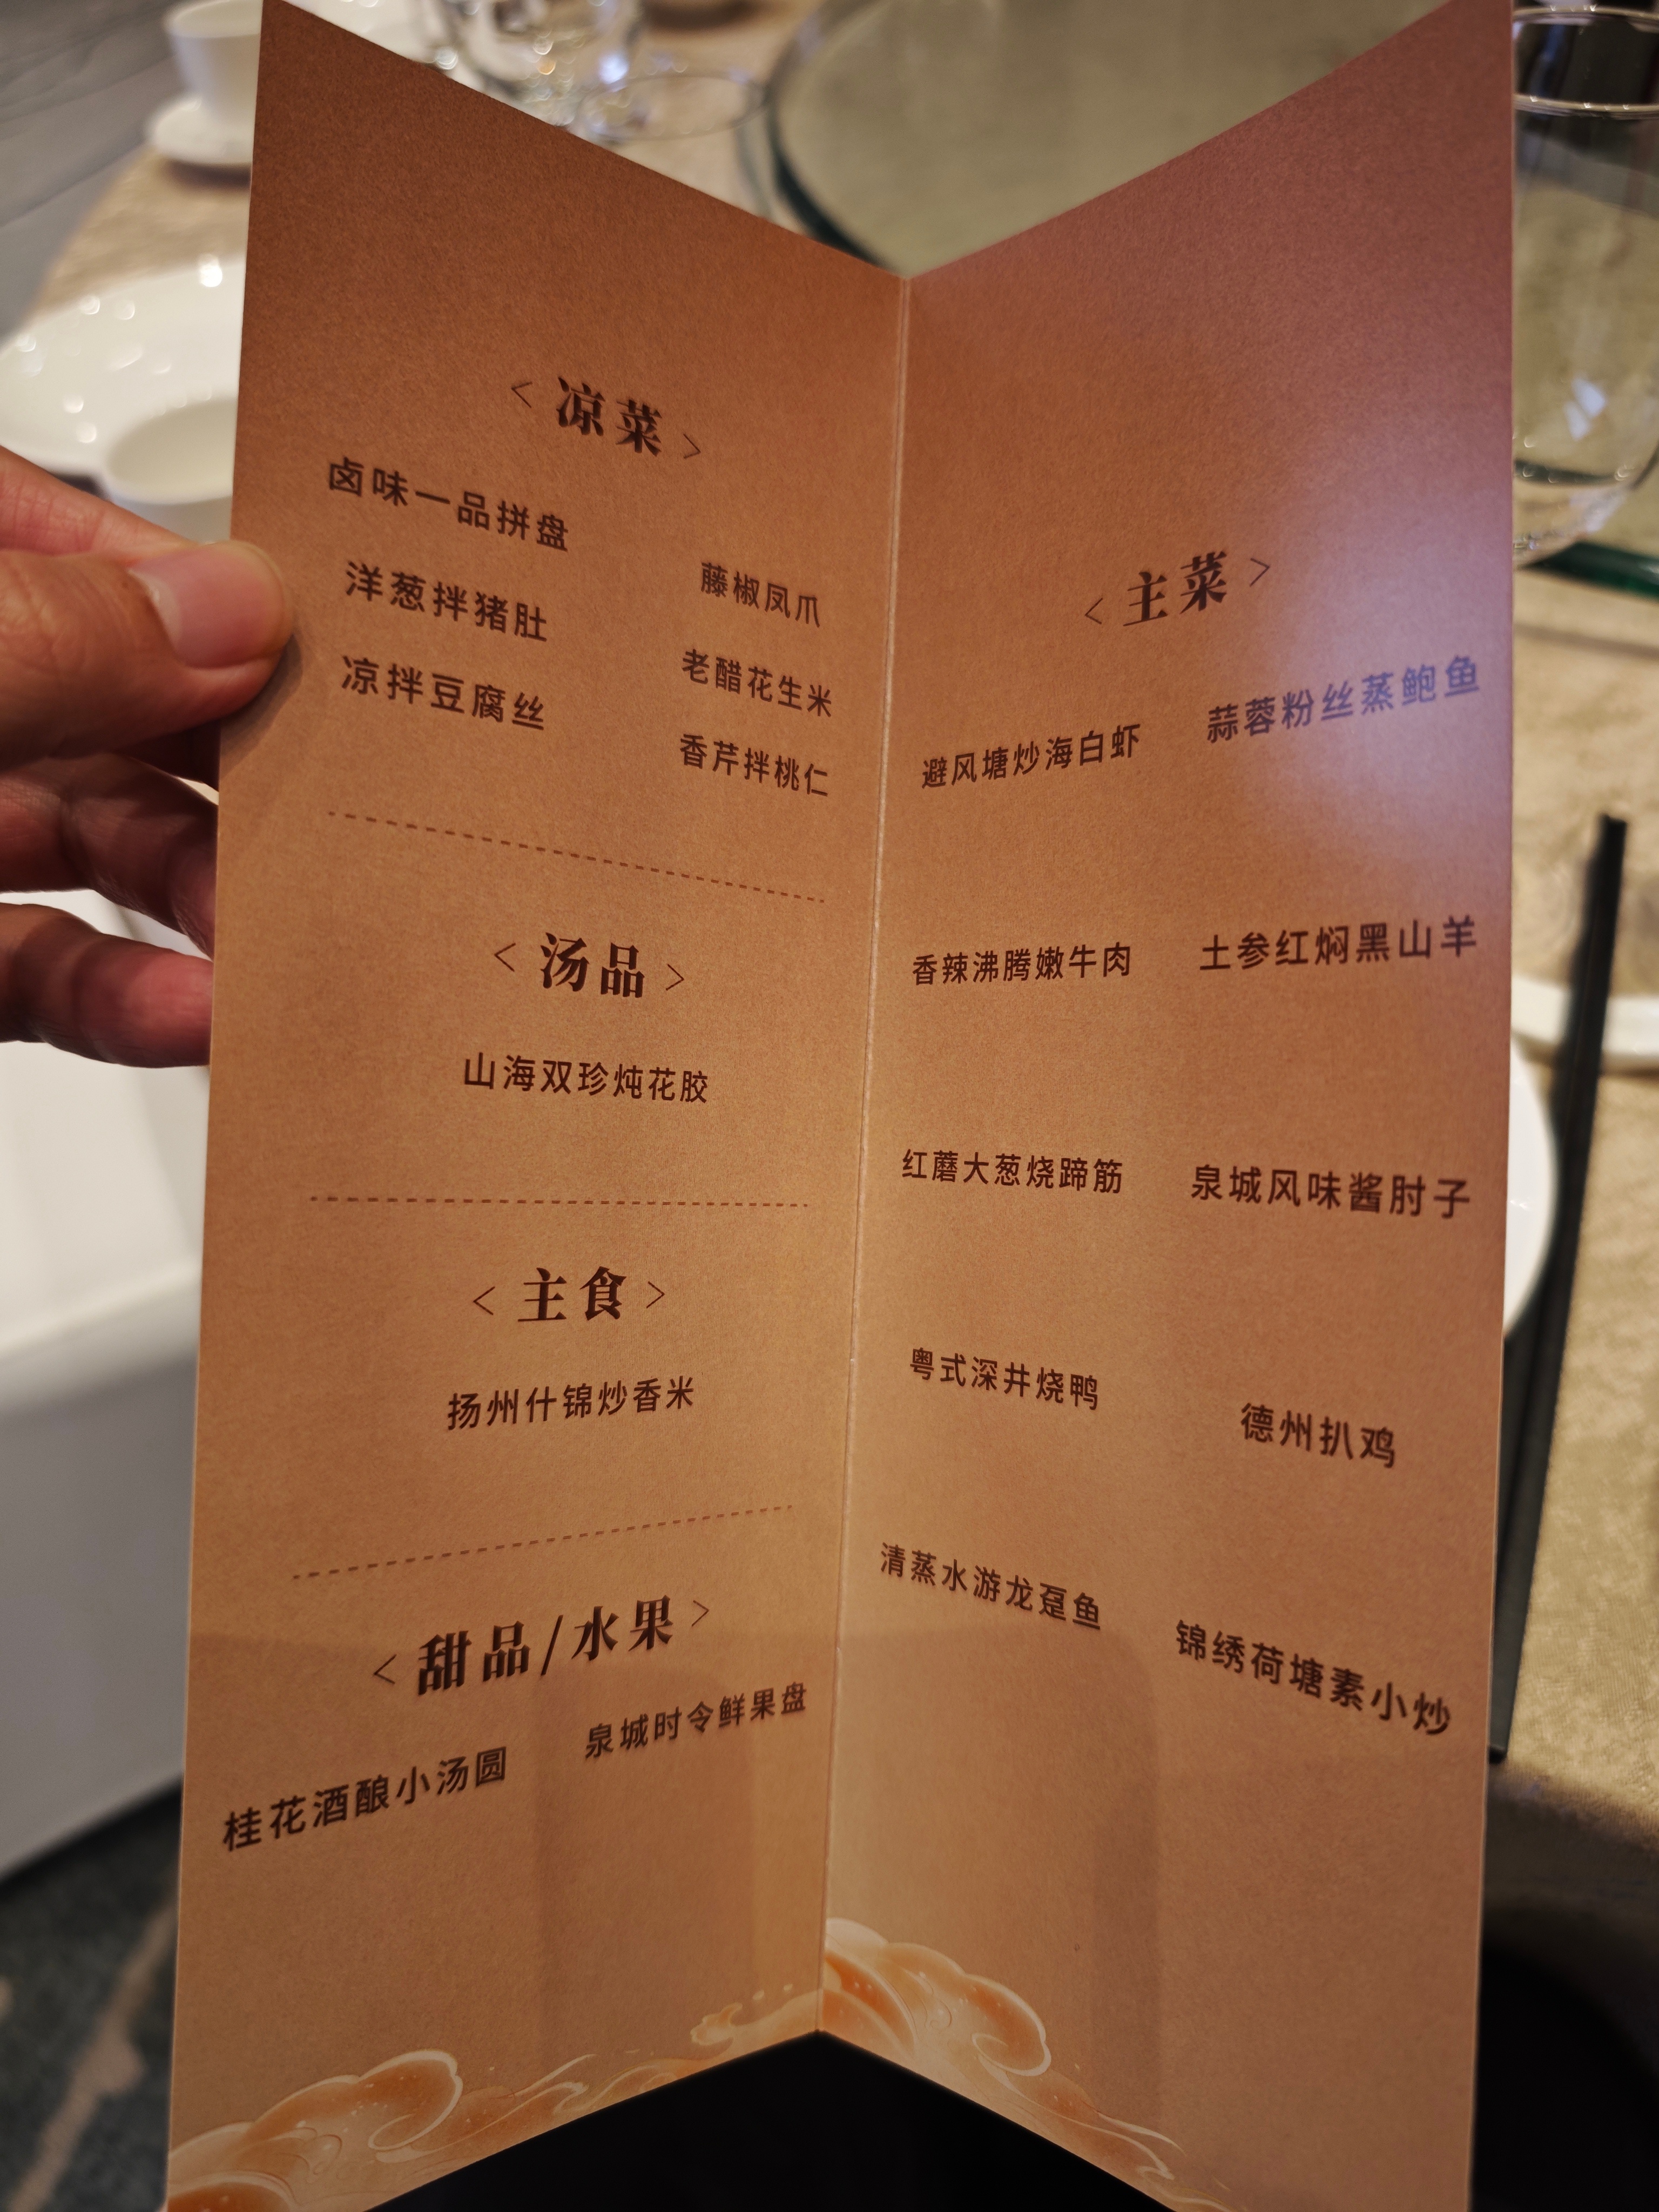 <凉菜>
卤味一品拼盘
藤椒凤爪
洋葱拌猪肚
老醋花生米
凉拌豆腐丝
香芹拌桃仁
<汤品>
山海双珍炖花胶
<主食>
扬州什锦炒香米
<甜品/水果>
桂花酒酿小汤圆
泉城时令鲜果盘
<主菜>
避风塘炒海白虾
蒜蓉粉丝蒸鲍鱼
香辣沸腾嫩牛肉
土参红焖黑山羊
红蘑大葱烧蹄筋
泉城风味酱肘子
粤式深井烧鸭
德州扒鸡
清蒸水游龙趸鱼
锦绣荷塘素小炒